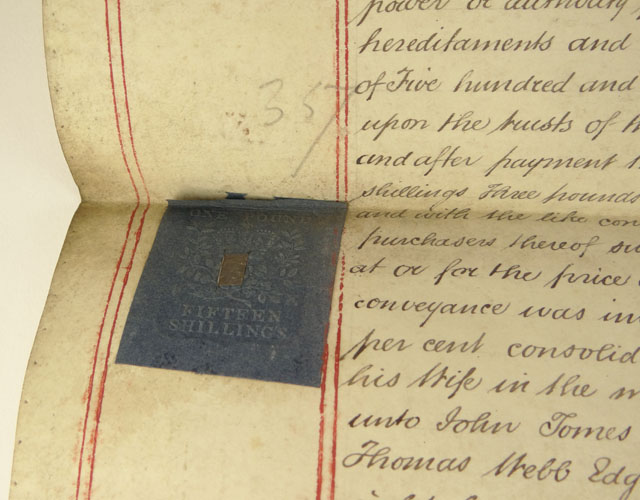 357
ONE POUND
FIFTEEN
SHILLINGS
power or authority
hereditaments and
of Five hundred and
upon the trusts of
and after payment
shillings Three pounds
and with the like con
purchasers thereof su
at or for the price
conveyance was in
per cent consolid
his Wife in the m
unto John Tomes
Thomas Webb Edg